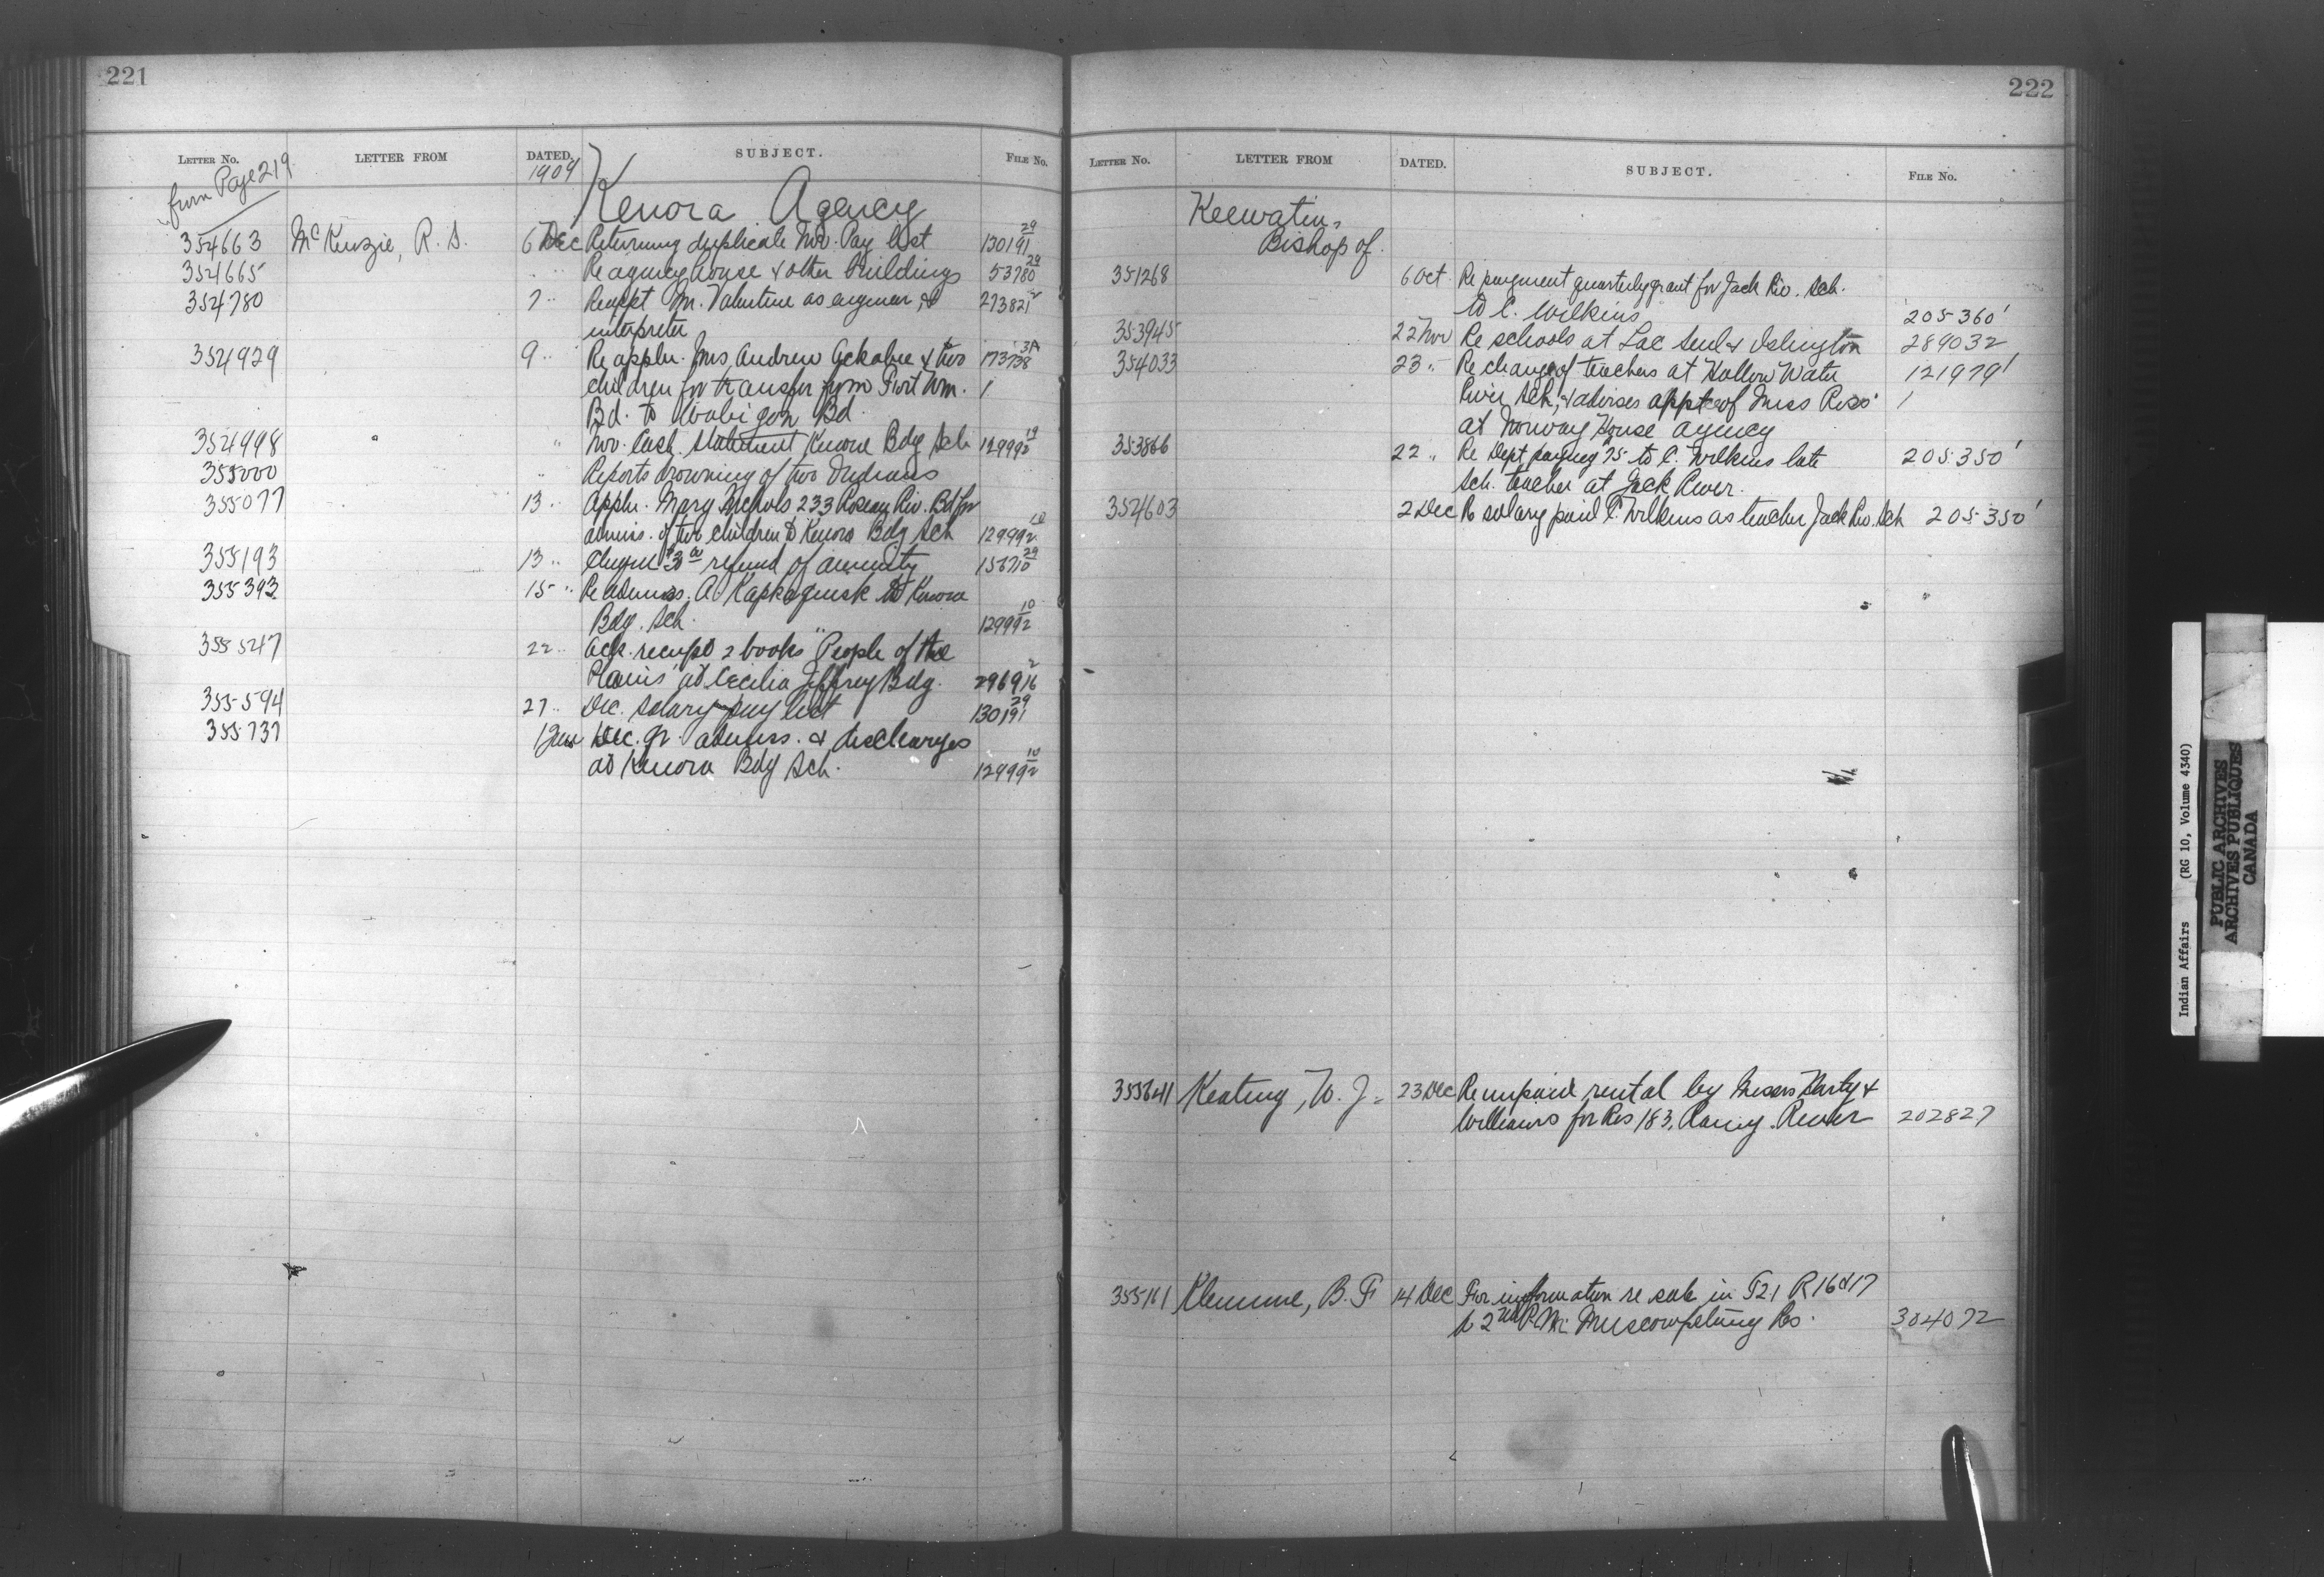 221
LETTER NO. LETTER FROM DATED. SUBJECT. FILE NO.
from Page 219
1909
Kenora Agency
354663 McKenzie, R. S. 6 Dec Returning duplicate Nov. Pay list 130191 29
354665 " " Re agency house & other buildings 53780 29
354780 7 " Re appt M. Valentine as engineer & 273821 2
interpreter
354929 9 " Re appln. Mrs Andrew Ackabee & two 173738 3A
children for transfer from Fort Wm. 1
Bd. to Wabigon Bd.
354998 " Nov. Cash statement Kenora Bdg Sch 129992 19
355000 " Reports drowning of two Indians
355077 13 " Appln. Mary Nichols 233 Roseau Riv. Bd for
admiss. of two children to Kenora Bdg Sch 129992 10
355193 13 " $3 00 refund of annuity 29
355393 15 " Re admiss. A. Kapkaquesk to Kenora
Bdg. Sch. 129992 10
355547 22 " Ack. receipt 2 books "People of the
Plains" at Cecilia Jeffrey Bdg. 296916 2
355594 27 " Dec. salary pay list 130191 29
355737 1 Jan Dec. qr. admiss. & discharges
at Kenora Bdg Sch. 129992 10
222
LETTER NO. LETTER FROM DATED. SUBJECT. FILE NO.
Keewatin,
Bishop of.
351268 6 Oct Re payment quarterly grant for Jack Riv. Sch.
to C. Wilkins 205360 1
353945 22 Nov Re schools at Lac Seul & Islington 289032
354033 23 " Re change of teachers at Hollow Water 121979 1
River Sch, & advises appt of Miss Ross 1
at Norway House agency
353866 22 " Re Dept paying 75 to C. Wilkins late 205350 1
Sch. teacher at Jack River.
354603 2 Dec Re salary paid C. Wilkins as teacher Jack Riv. Sch 205350 1
355641 Keating, W. J. 23 Dec Re unpaid rental by Messrs Harty &
Williams for Res 183, Rainy River 202827
355161 Klemme, B. F. 14 Dec For information re sale in T21 R 16 & 17
W 2nd P.M. Muscowpetung Res. 304072
Indian Affairs (RG 10, Volume 4340)
PUBLIC ARCHIVES
ARCHIVES PUBLIQUES
CANADA